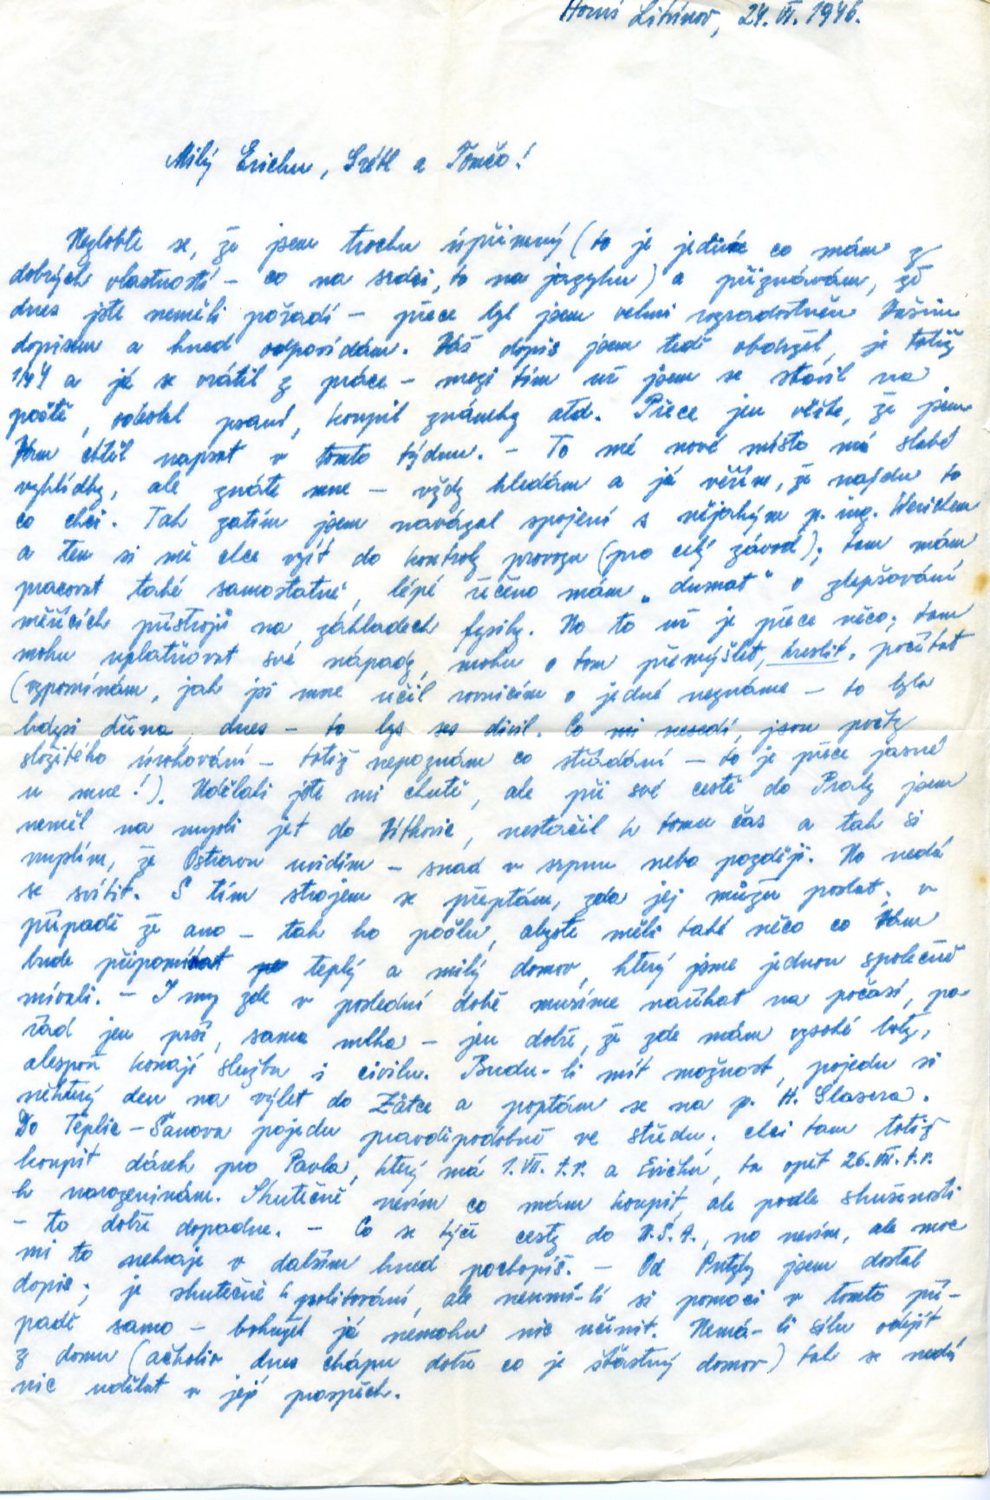 Horní Litvínov, 24. VI. 1946.
Milý Erichu, Grétl a Tomčo!
Nezlobte se, že jsem trochu úpřimný (to je jediné co mám z
dobrých vlastností – co na srdci, to na jazyku) a přiznávám, že
dnes jste neměli pořadí – přece byl jsem velmi rozradostněn Vašim
dopisem a hned odpovídám. Váš dopis jsem teď obdržel, je totiž
a já se vrátil z práce – mezi tím už jsem se stavil na
poště, odeslal praní, koupil známky atd. Přece jen věřte, že jsem
Vám chtěl napsat v tomto týdnu. – To mé nové místo má slabé
vyhlídky, ale znáte mne – vždy hledám a já věřím, že najdu to
co chci. Tak zatím jsem navázal spojení s nějakým p. ing. Werichem
a ten si mě chce vzít do kontroly provozu (pro celý závod); tam mám
pracovat také samostatně, lépe řečeno mám „dumat" o zlepšování
měřících přístrojů na základech fysiky. No to už je přece něco; tam
mohu uplatňovat své nápady, mohu o tom přemýšlet, kreslit, počítat
(vzpomínám, jak jsi mne učil rovnicím o jedné neznámé – to byla
kdysi dřina, dnes – to bys ses divil. Co mi nesedí, jsou počty
složitého úrokování – totiž nepoznám co střádání – to je přece jasné
u mne!). Udělali jste mi chutě, ale při své cestě do Prahy jsem
neměl na mysli jet do Vítkovic, nestačil k tomu čas a tak si
myslím, že Ostravu uvidím – snad v srpnu nebo později. No nedá
se svítit. S tím strojem se přeptám, zda jej můžu poslat; v
případě že ano – tak ho pošlu, abyste měli také něco co Vám
bude připomínat teplý a milý domov, který jsme jednou společně
mívali. – I my zde v poslední době musíme naříkat na počasí, po-
řád jen prší, samá mlha – jen dobře, že zde mám vysoké boty,
alespoň konají službu i civilu. Budu-li mít možnost, pojedu si
některý den na výlet do Žatce a poptám se na p. H. Glasera.
Do Teplic – Šanova pojedu pravděpodobně ve středu; chci tam totiž
koupit dárek pro Pavla, který má 1. VII. t.r. a Evičku, ta opět 26. VII. t.r.
k narozeninám. Skutečně nevím co mám koupit, ale podle zkušenosti
– to dobře dopadne. – Co se týče cesty do U.S.A., no nevím, ale moc
mi to nehraje v dalším hned pochopíš. – Od jsem dostal
dopis; je skutečně k politování, ale neumí-li si pomoci v tomto pří-
padě samo – bohužel já nemohu nic učinit. Nemá-li sílu odejít
z domu (ačkoliv dnes chápu dobře co je šťastný domov) tak se nedá
nic udělat v její prospěch.